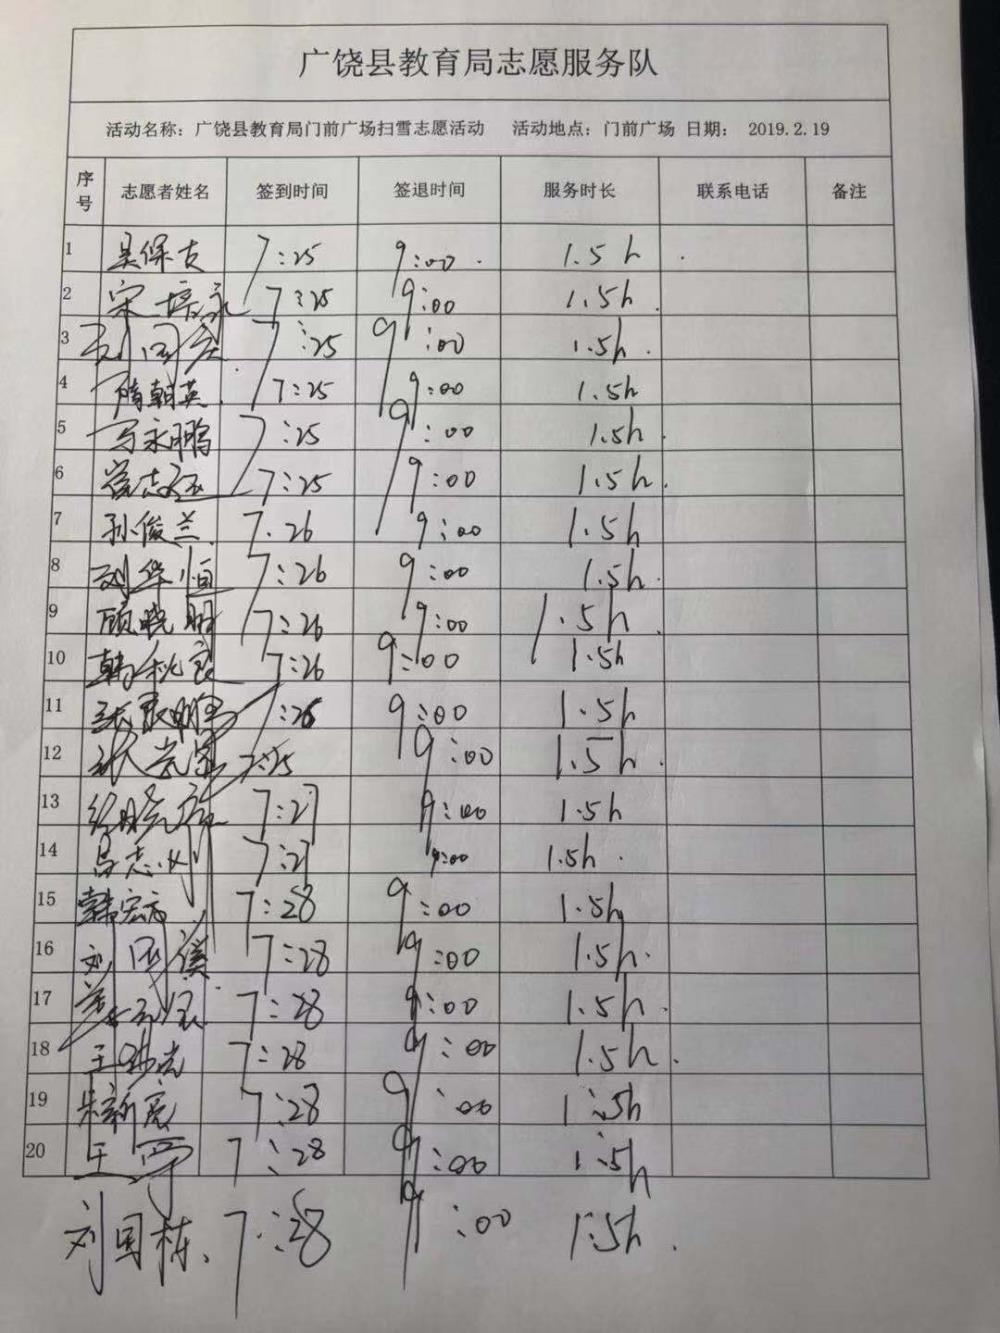 广饶县教育局志愿服务队
活动名称：广饶县教育局门前广场扫雪志愿活动 活动地点：门前广场 日期： 2019.2.19
序号 志愿者姓名 签到时间 签退时间 服务时长 联系电话 备注
1 吴保友 7:25 9:00 1.5h
2 宋培永 7:25 9:00 1.5h
3 7:25 9:00 1.5h
4 隋朝英 7:25 9:00 1.5h
5 马永鹏 7:25 9:00 1.5h
6 7:25 9:00 1.5h
7 孙俊兰 7.26 9:00 1.5h
8 刘华恒 7:26 9:00 1.5h
9 顾晓明 7:26 9:00 1.5h
10 韩秋良 7:26 9:00 1.5h
11 9:00 1.5h
12 9:00 1.5h
13 7:27 9:00 1.5h
14 吕志刚 7:27 9:00 1.5h
15 韩宏方 7:28 9:00 1.5h
16 7:28 9:00 1.5h
17 7:28 9:00 1.5h
18 7:28 9:00 1.5h
19 朱新亮 7:28 9:00 1:5h
20 王宁 7:28 9:00 1:5h
刘国栋、 7:28 9:00 1:5h